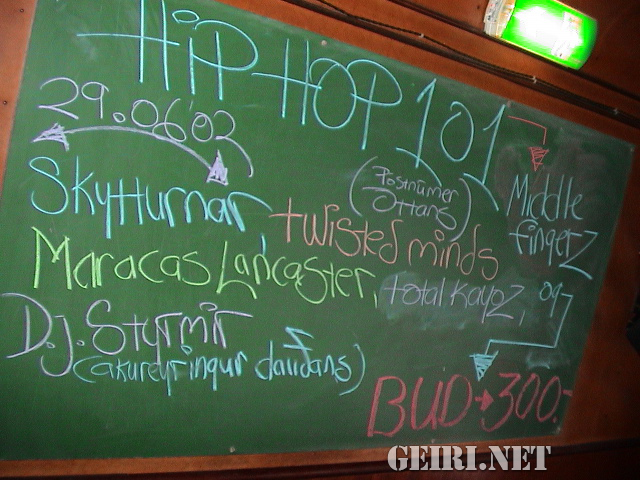 HIP HOP 101
29.06'02
Skytturnar,
(Póstnúmer
Óttans)
Middle
fingerZ
twisted minds
Maracas Lancaster,
total KayoZ, og
D.J. Stytmir
(akureyringur dauðans)
BUD → 300.-
GEIRI.NET